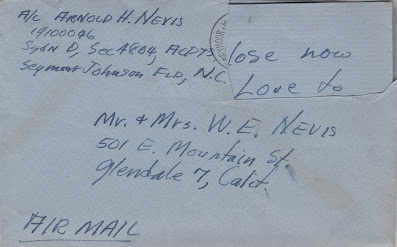 A/C ARNOLD H. NEVIS
19100046
Sqdn D, Sec 4804, ACPTS
Seymour Johnson FLD, N.C.
lose now
Love to
Mr. & Mrs. W. E. NEVIS
501 E. Mountain St.
Glendale 7, Calif.
AIR MAIL